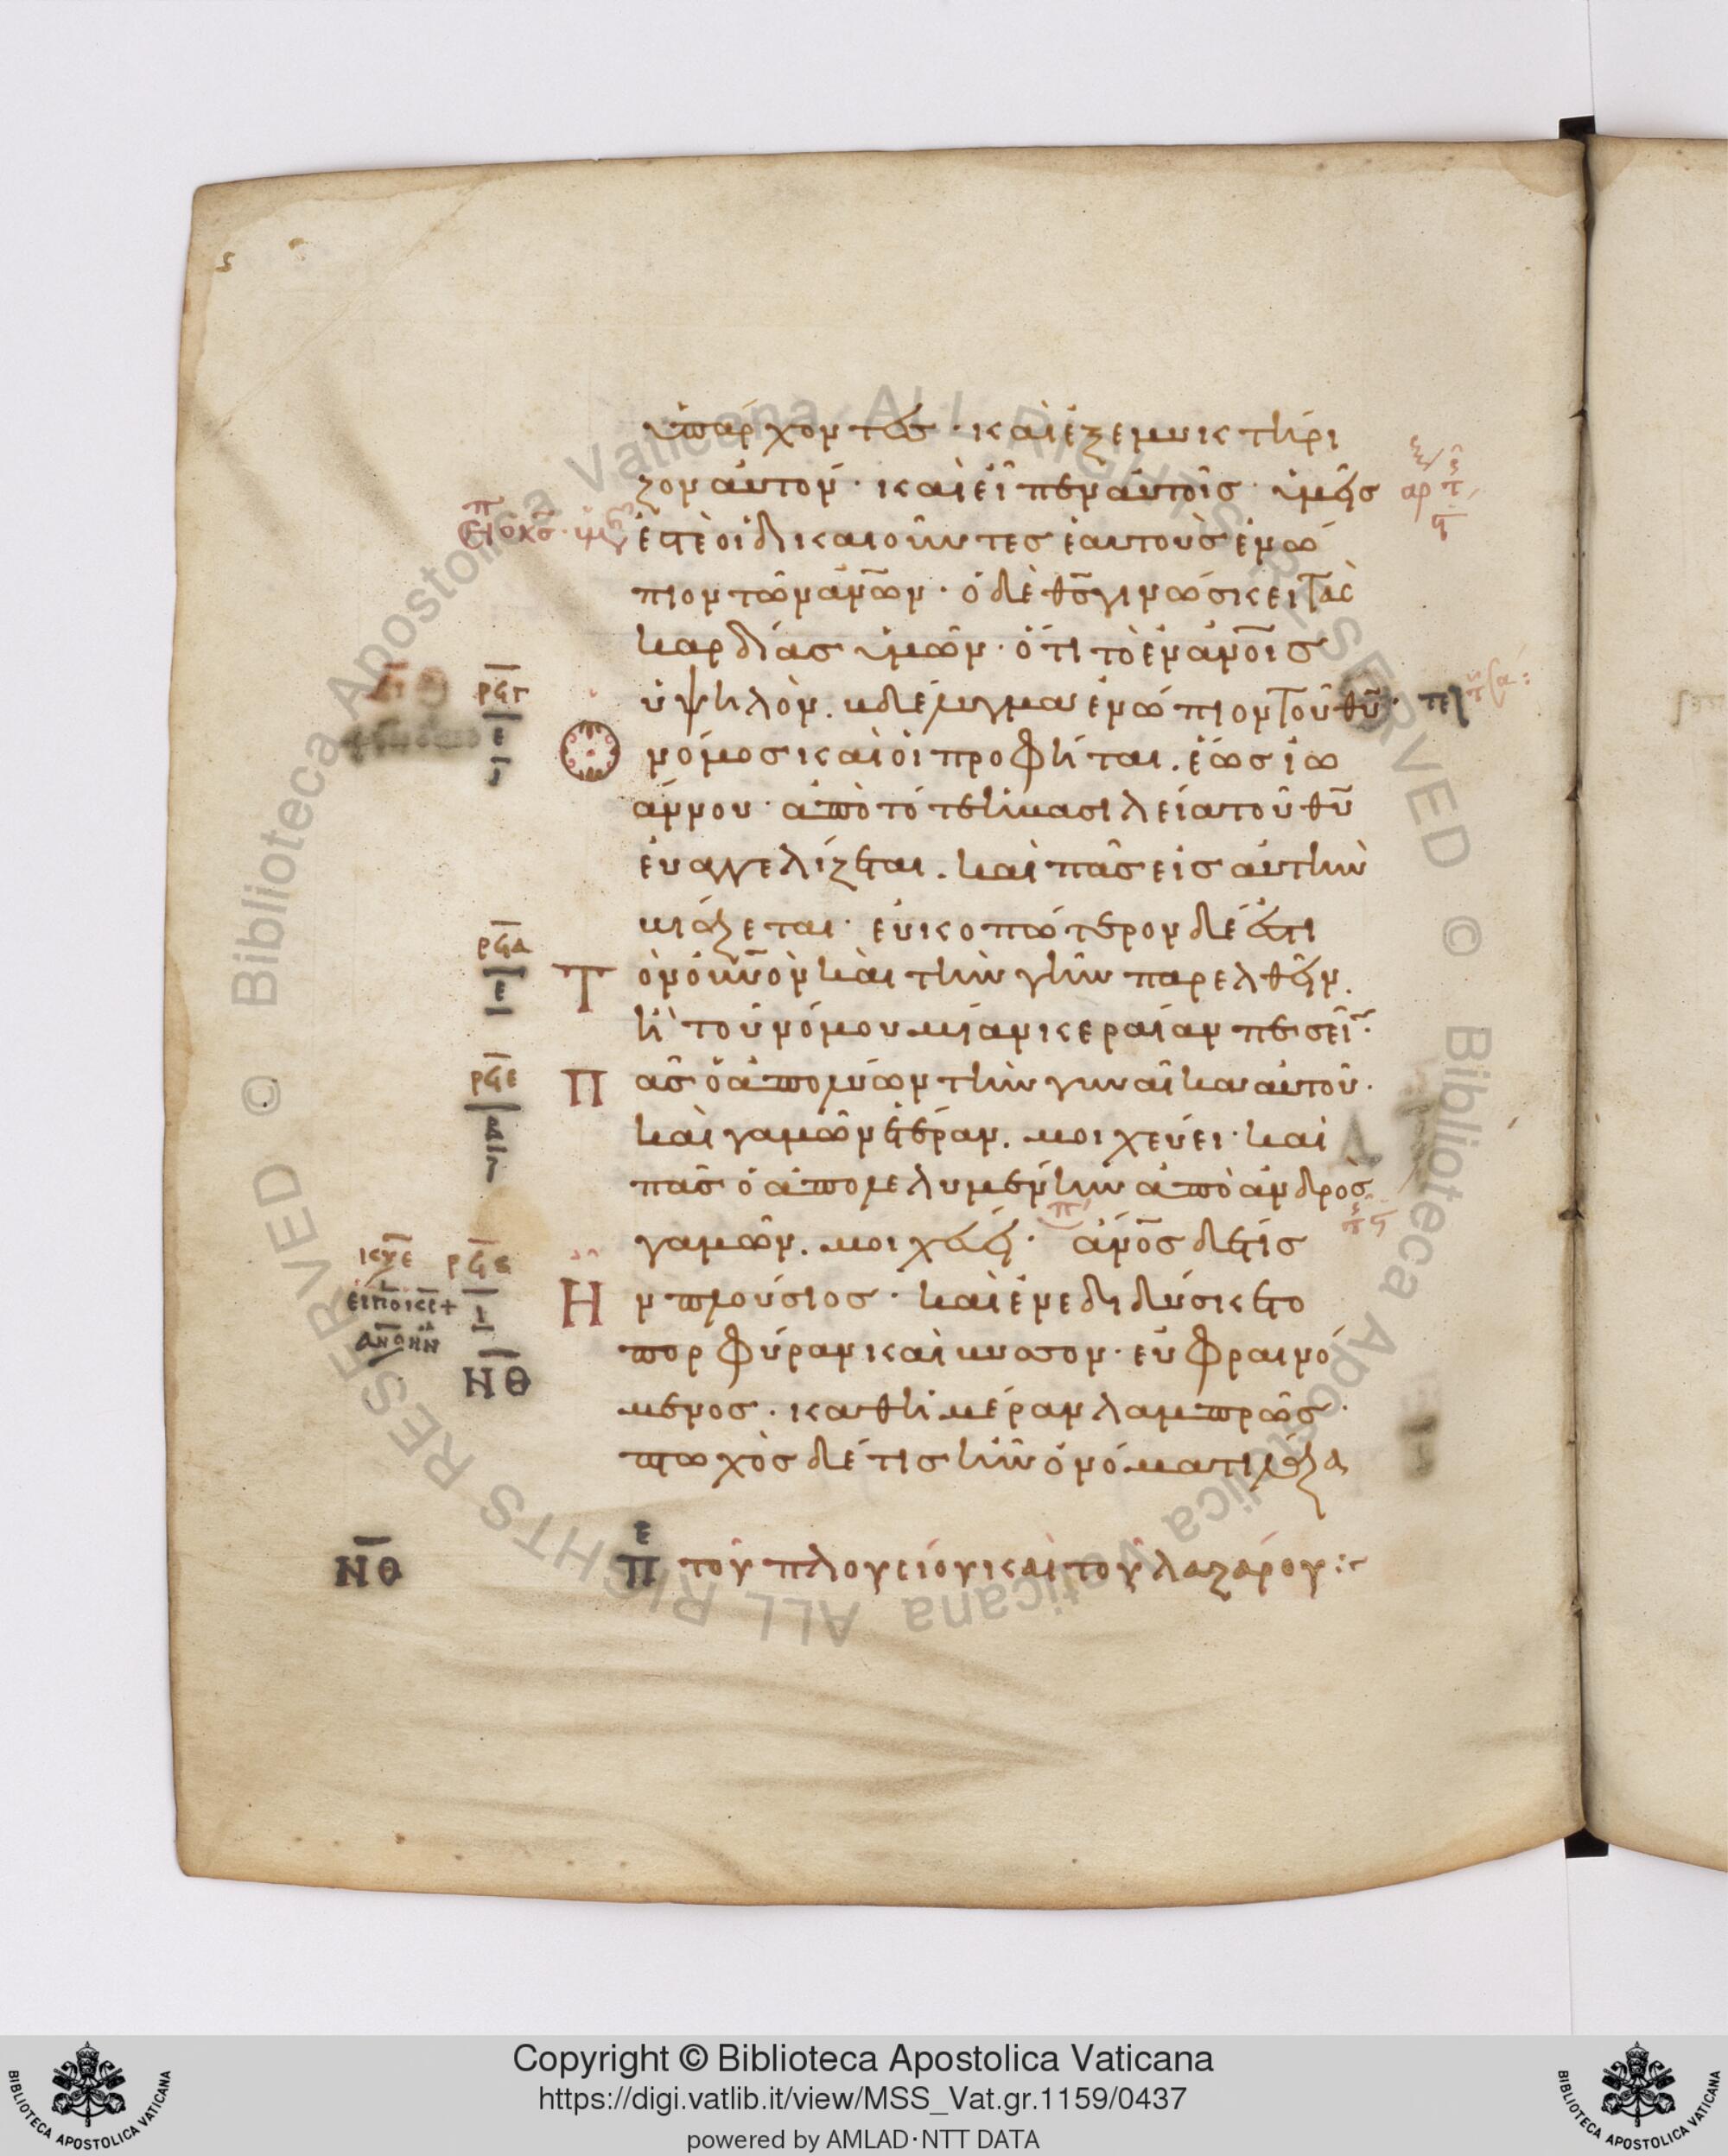 ὑπάρχοντες · καὶ ἐξεμυκτήρι
ζον αὐτόν · καὶ εἶπεν αὐτοῖς · ὑμεῖς
ἐστὲ οἱ δικαιοῦντες ἑαυτοὺς ἐνώ
πιον τῶν ἀν̅ων · ὁ δὲ θ̅ς γινώσκει τὰς
καρδίας ὑμῶν · ὅτι τὸ ἐν ἀν̅οις
ὑψηλὸν . βδέλυγμα ἐνώπιον τοῦ θ̅υ · τελ
ρϟγ
Ο νόμος καὶ οἱ προφῆται . ἕως ἰω
άννου · ἀπὸ τότε ἡ βασιλεία τοῦ θ̅υ
εὐαγγελίζεται . καὶ πᾶς εἰς αὐτὴν
βιάζεται · εὐκοπώτερον δέ ἐστι
ρϟδ
Τ ὸν οὐ̅νὸν καὶ τὴν γῆν παρελθεῖν .
ἢ τοῦ νόμου μίαν κεραίαν πεσεῖν ·
ρϟε
Π ᾶς ὁ ἀπολύων τὴν γυναῖκα αὐτοῦ ·
καὶ γαμῶν ἑτέραν . μοιχεύει · καὶ
πᾶς ὁ ἀπολελυμένην ἀπὸ ἀνδρὸς
γαμῶν . μοιχεύει · ἄν̅ος δέ τις
ρϟς
Η ν πλούσιος · καὶ ἐνεδιδύσκετο
πορφύραν καὶ βύσσον · εὐφραινό
ΝΘ
μενος · καθ ἡμέραν λαμπρῶς ·
πτωχὸς δέ τις ἦν ὀνόματι λάζα
ΝΘ Π ε τοῦ πλουσίου καὶ τοῦ λαζάρου :
Copyright © Biblioteca Apostolica Vaticana
https://digi.vatlib.it/view/MSS_Vat.gr.1159/0437
powered by AMLAD·NTT DATA
BIBLIOTECA APOSTOLICA VATICANA
BIBLIOTECA APOSTOLICA VATICANA
© Biblioteca Apostolica Vaticana ALL RIGHTS RESERVED
© Biblioteca Apostolica Vaticana ALL RIGHTS RESERVED